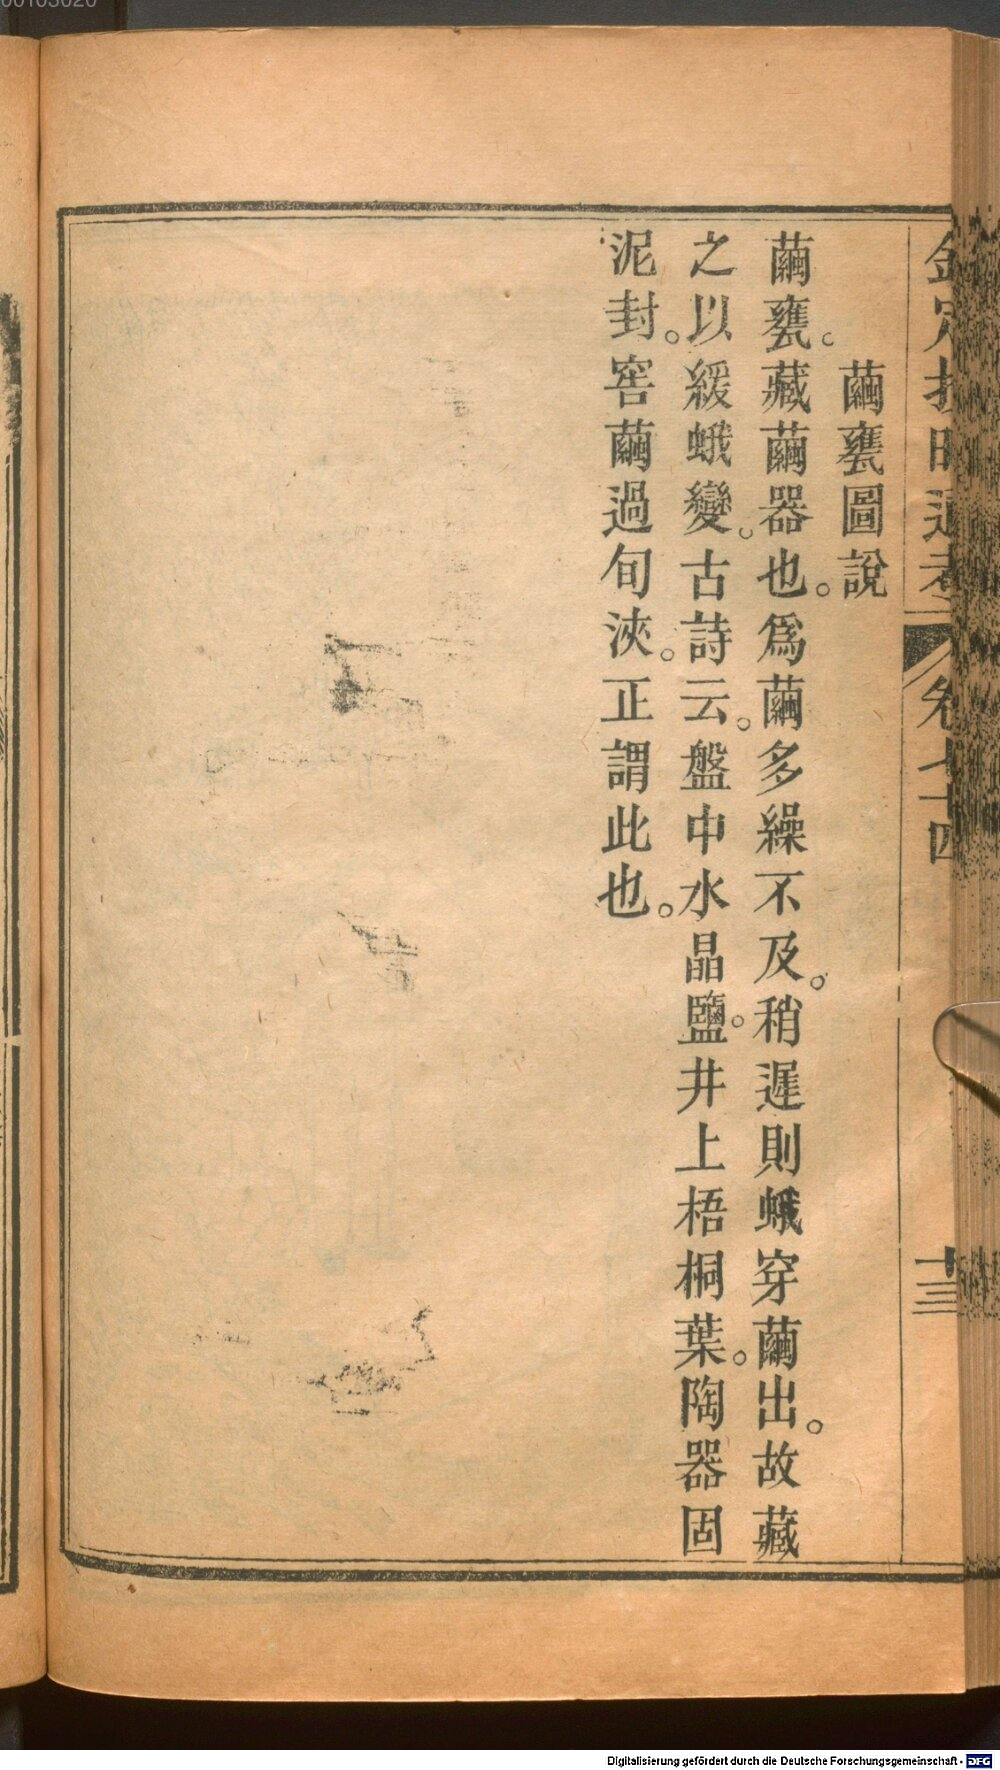 金定授時通考 卷七十四 十三
繭甕圖說
繭甕。藏繭器也。爲繭多繰不及。稍遲則蛾穿繭出。故藏
之以緩蛾變。古詩云。盤中水晶鹽。井上梧桐葉。陶器固
泥封。窖繭過旬浹。正謂此也。
00103020
Digitalisierung gefördert durch die Deutsche Forschungsgemeinschaft - DFG